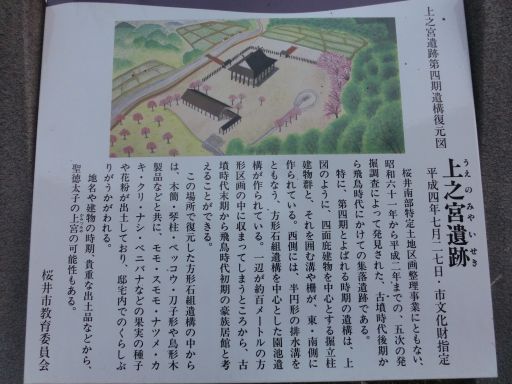 上之宮遺跡第四期遺構復元図
うえのみやいせき
上之宮遺跡
平成四年七月二七日・市文化財指定
桜井南部特定土地区画整理事業にともない、
昭和六十一年から平成二年までの、五次の発
掘調査によって発見された、古墳時代後期か
ら飛鳥時代にかけての集落遺跡である。
特に、第四期とよばれる時期の遺構は、上
図のように、四面庇建物を中心とする掘立柱
建物群と、それを囲む溝や柵が、東・南側に
作られている。西側には、半円形の排水溝を
ともなう、方形石組遺構を中心とした園池遺
構が作られている。一辺が約百メートルの方
形区画の中に収まってしまうところから、古
墳時代末期から飛鳥時代初期の豪族居館と考
えることができる。
この場所で復元した方形石組遺構の中から
は、木簡・琴柱・ベッコウ・刀子形や鳥形木
製品などと共に、モモ・スモモ・ナツメ・カ
キ・クリ・ナシ・ベニバナなどの果実の種子
や花粉が出土しており、邸宅内でのくらしぶ
りがうかがわれる。
地名や建物の時期、貴重な出土品などから、
聖徳太子の上宮の可能性もある。
桜井市教育委員会